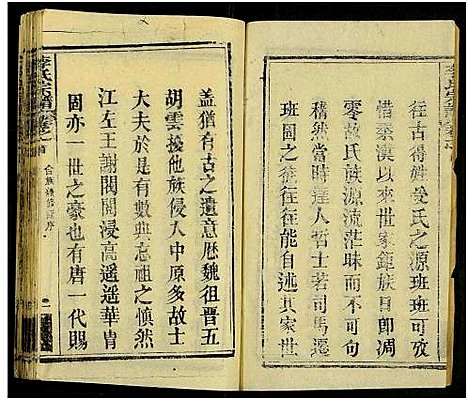 往古得姓受氏之源班班可攷
惜秦漢以來世家鉅族自即凋
零故氏族源流茫昧而不可復
稽然當時達人哲士若司馬遷
班固之輩往往能自述其家世
蓋猶有古之遺意厯魏徂晋五
胡雲擾他族侵入中原多故士
大夫於是有數典忘祖之慎然
江左王謝閥閱浸高遥遥華胄
固亦一世之豪也有唐一代賜
李氏宗譜